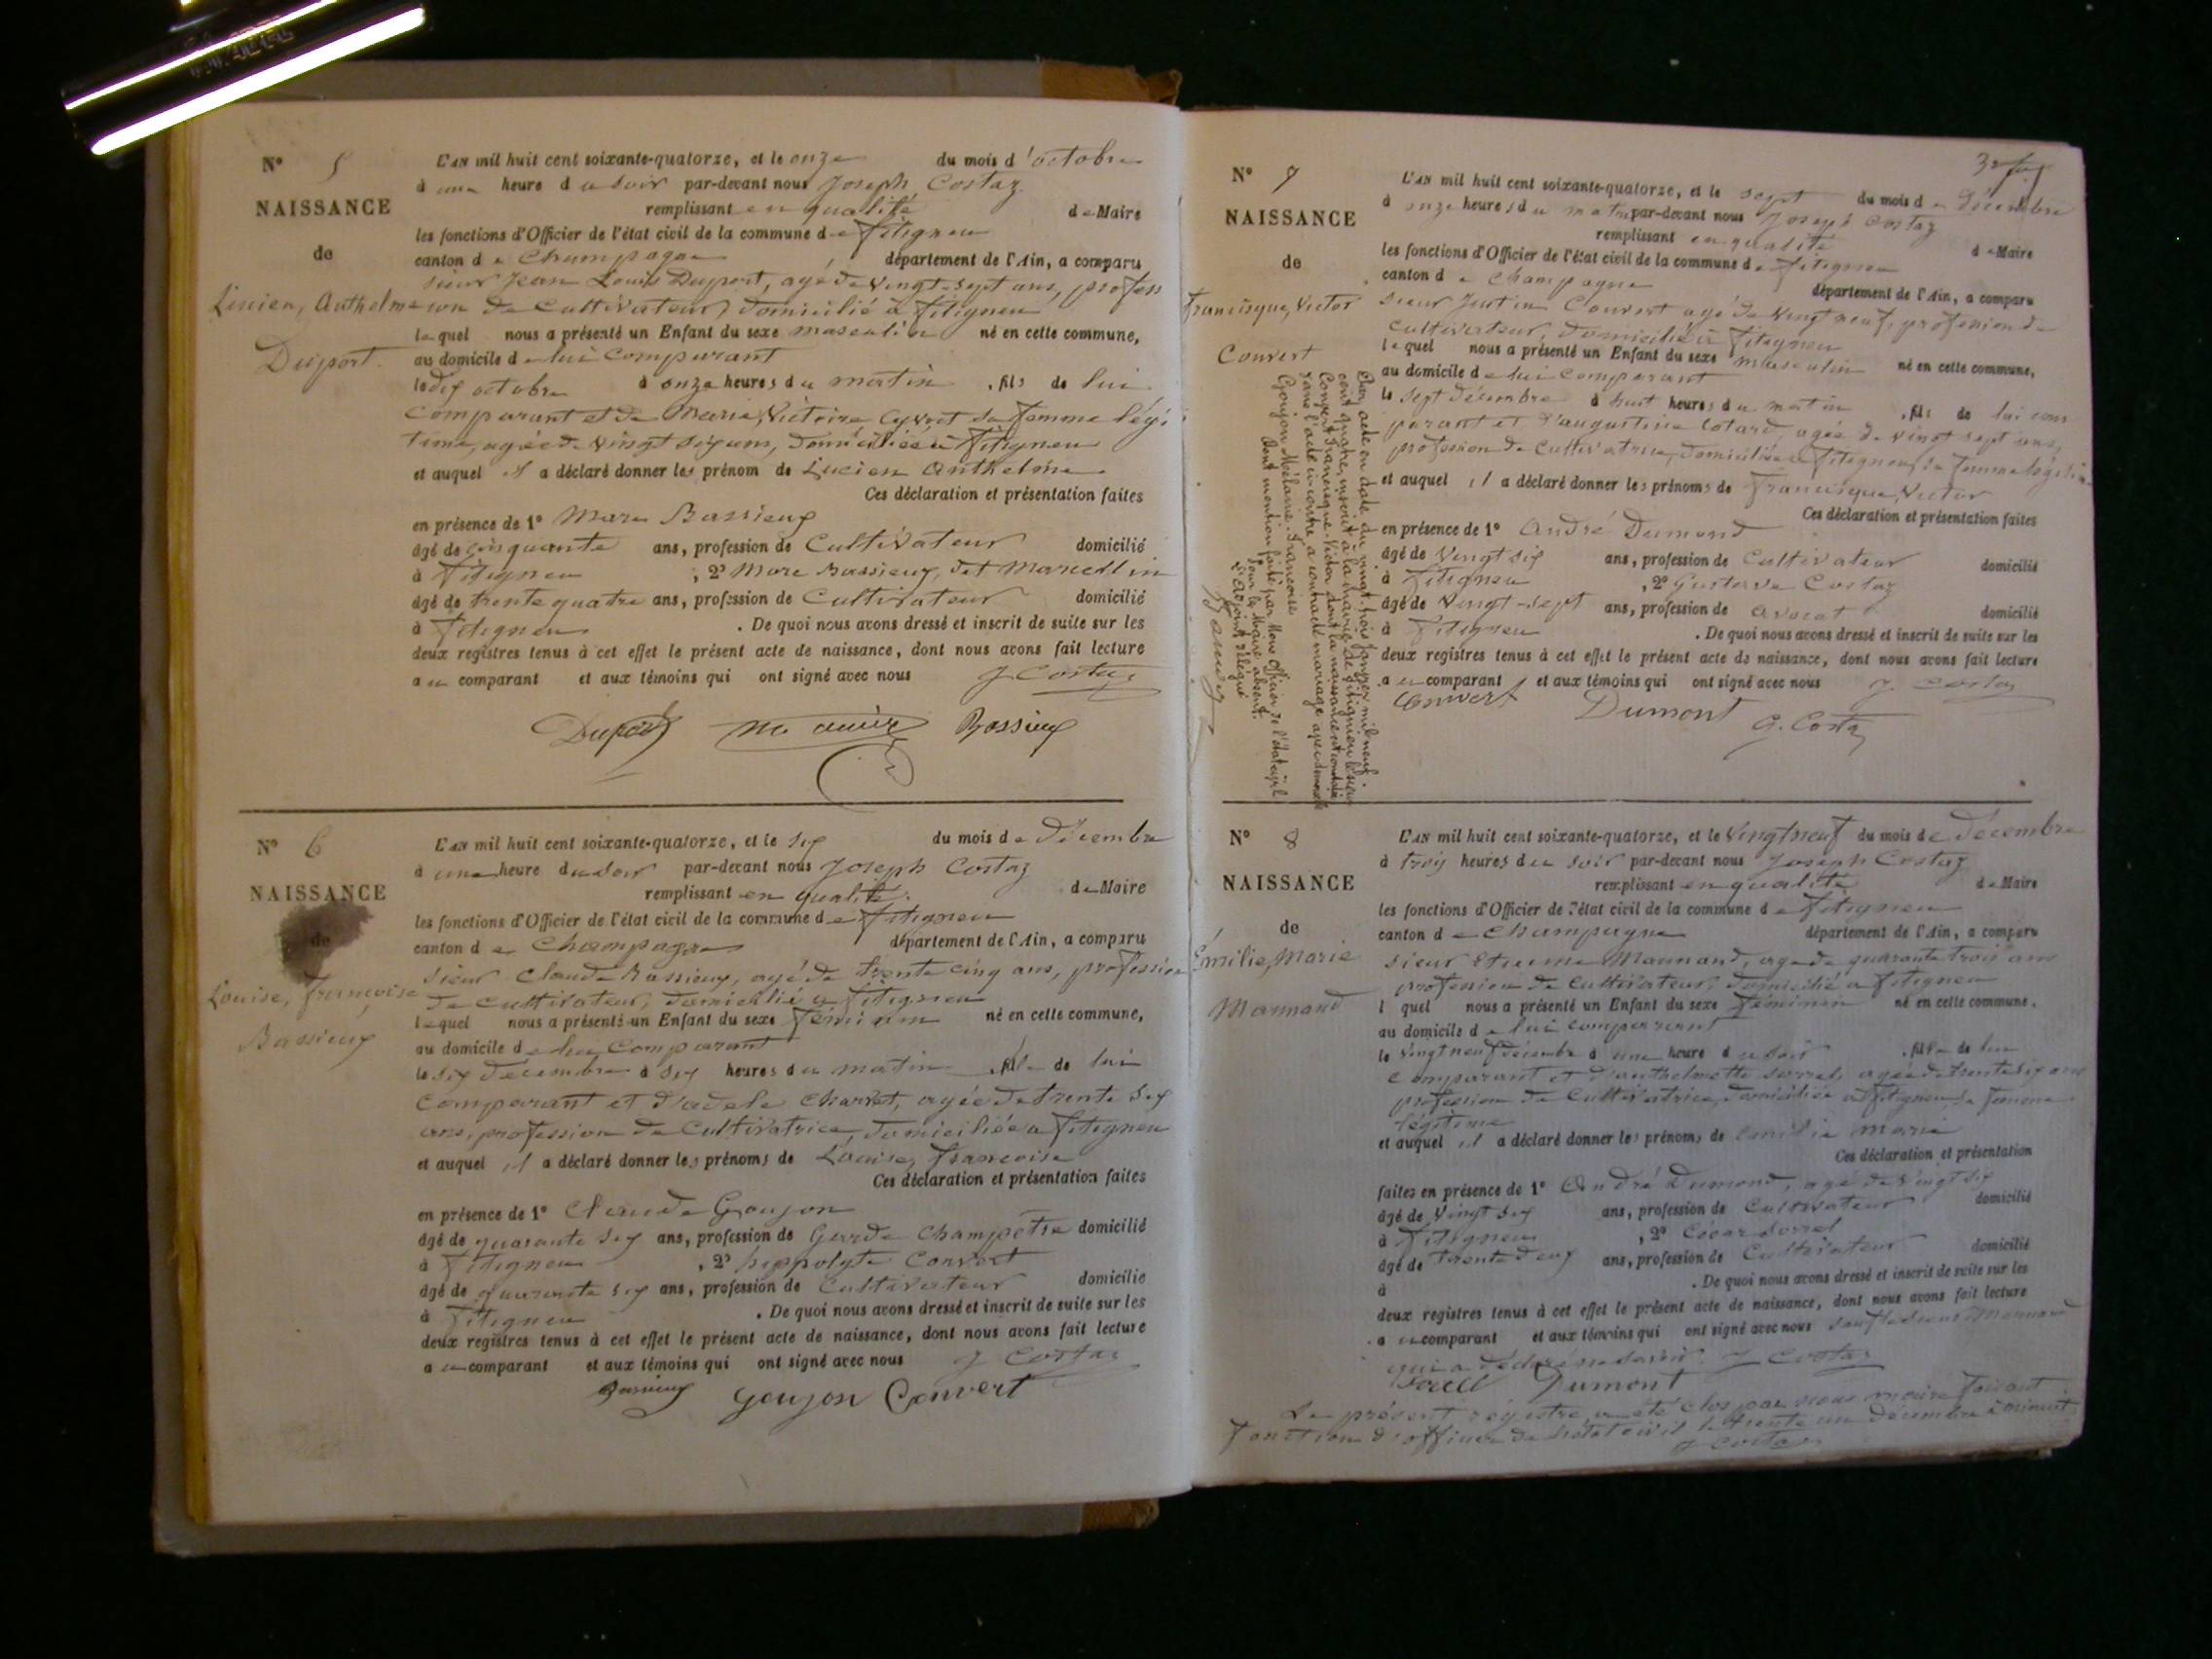 N° 5
NAISSANCE
de
Lucien, Anthelme
Duport.
L'AN mil huit cent soixante-quatorze, et le onze du mois d'octobre
à une heure du soir par-devant nous Joseph Costaz
remplissant en qualité de Maire
les fonctions d'Officier de l'état civil de la commune de fitigneu
canton de Champagne département de l'Ain, a comparu
sieur Jean Louis Duport, agé de vingt-sept ans, profess
ion de Cultivateur, domicilié à fitigneu
lequel nous a présenté un Enfant du sexe masculin né en cette commune,
au domicile de lui comparant
le dix octobre à onze heures du matin, fils de lui
comparant et de Marie Victoire sa femme légi
time, agée de vingt six ans, domiciliée à fitigneu
et auquel il a déclaré donner les prénom de Lucien Anthelme
Ces déclaration et présentation faites
en présence de 1° Marc Bassieux
âgé de cinquante ans, profession de Cultivateur domicilié
à fitigneu, 2° Marc Bassieux, dit Marcellin
âgé de trente quatre ans, profession de Cultivateur domicilié
à fitigneu. De quoi nous avons dressé et inscrit de suite sur les
deux registres tenus à cet effet le présent acte de naissance, dont nous avons fait lecture
au comparant et aux témoins qui ont signé avec nous J Costaz
Duport Bassieux
N° 6
NAISSANCE
de
Louise, françoise
Bassieux
L'AN mil huit cent soixante-quatorze, et le six du mois de Décembre
à une heure du soir par-devant nous Joseph Costaz
remplissant en qualité de Maire
les fonctions d'Officier de l'état civil de la commune de fitigneu
canton de Champagne département de l'Ain, a comparu
sieur Claude Bassieux, agé de trente cinq ans, profession
de cultivateur, domicilié à fitigneu
lequel nous a présenté un Enfant du sexe féminin né en cette commune,
au domicile de lui Comparant
le six décembre à six heures du matin, fille de lui
comparant et d'adele Charvet, agée de trente six
ans, profession de Cultivatrice, domiciliée à fitigneu
et auquel il a déclaré donner les prénoms de Louise, françoise
Ces déclaration et présentation faites
en présence de 1° Claude Goujon
âgé de quarante six ans, profession de Garde Champêtre domicilié
à fitigneu, 2° hippolyte Convert
âgé de quarante six ans, profession de Cultivateur domicilié
à fitigneu. De quoi nous avons dressé et inscrit de suite sur les
deux registres tenus à cet effet le présent acte de naissance, dont nous avons fait lecture
au comparant et aux témoins qui ont signé avec nous J Costaz
Bassieux Goujon Convert
N° 7
NAISSANCE
de
francisque, Victor
Convert
Par acte en date du vingt-trois janvier mil neuf
cent quatre, inscrit à la mairie de fitignieu le sieur
Convert Francisque-Victor dont la naissance est constatée
dans l'acte ci-contre a contracté mariage avec demoiselle
Goujon Mélanie-Françoise
Dont mention faite par Nous officier de l'état-civil
Pour le Maire absent
L'adjoint délégué
L'AN mil huit cent soixante-quatorze, et le sept du mois de Décembre
à onze heures du matin par-devant nous Joseph Costaz
remplissant en qualité de Maire
les fonctions d'Officier de l'état civil de la commune de fitigneu
canton de Champagne département de l'Ain, a comparu
sieur Justin Convert agé de vingt neuf, profession de
cultivateur, domicilié à fitigneu
lequel nous a présenté un Enfant du sexe masculin né en cette commune,
au domicile de lui comparant
le sept décembre à huit heures du matin, fils de lui com
parant et d'augustine Cotard, agée de vingt sept ans,
profession de cultivatrice, domiciliée à fitigneu, sa femme légitime
et auquel il a déclaré donner les prénoms de francisque, Victor
Ces déclaration et présentation faites
en présence de 1° André Dumond
âgé de vingt six ans, profession de Cultivateur domicilié
à fitigneu, 2° Gustave Costaz
âgé de vingt-sept ans, profession de avocat domicilié
à fitigneu. De quoi nous avons dressé et inscrit de suite sur les
deux registres tenus à cet effet le présent acte de naissance, dont nous avons fait lecture
au comparant et aux témoins qui ont signé avec nous J. Costaz
Convert Dumont G. Costaz
N° 8
NAISSANCE
de
Émilie, Marie
Mannand
L'AN mil huit cent soixante-quatorze, et le vingt neuf du mois de Décembre
à trois heures du soir par-devant nous Joseph Costaz
remplissant en qualité de Maire
les fonctions d'Officier de l'état civil de la commune de fitigneu
canton de Champagne département de l'Ain, a comparu
sieur Etienne Mannand, agé de quarante trois ans
profession de Cultivateur, domicilié à fitigneu
l quel nous a présenté un Enfant du sexe féminin né en cette commune,
au domicile de lui comparant
le vingt neuf décembre à une heure du soir, fille de lui
comparant et d'anthelmette sorrel, agée de trente six ans
profession de Cultivatrice, domiciliée à fitigneu sa femme
légitime
et auquel il a déclaré donner les prénoms de Emilie Marie
Ces déclaration et présentation
faites en présence de 1° André Dumond, agé de vingt six
âgé de vingt six ans, profession de Cultivateur domicilié
à fitigneu, 2° César Sorrel
âgé de trente deux ans, profession de Cultivateur domicilié
à. De quoi nous avons dressé et inscrit de suite sur les
deux registres tenus à cet effet le présent acte de naissance, dont nous avons fait lecture
au comparant et aux témoins qui ont signé avec nous sauf le sieur Mannand
qui a déclaré ne savoir. J Costaz
Sorell Dumont
Le présent registre a été clos par nous maire faisant
fonction d'officier de l'état civil le trente un décembre à minuit
J Costaz